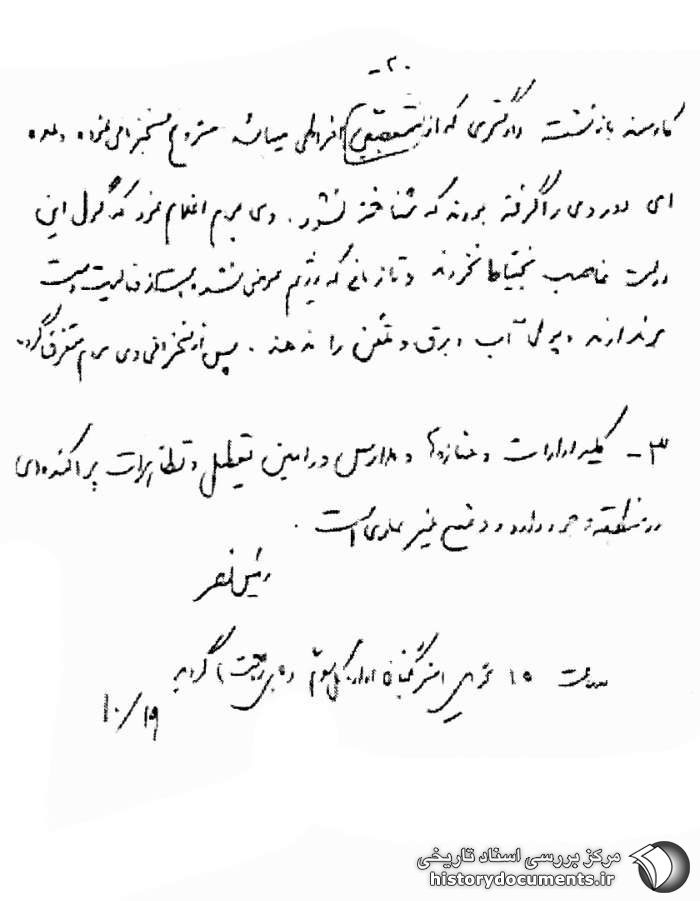 -۲-
کارمند بازنشسته دادگستری که از متعصبین افراطی میباشد شروع بسخنرانی نموده و عده
ای دور وی را گرفته بودند که شناخته نشود. وی بمردم اعلام نمود که گول این
دولت غاصب بختیار را نخورند و تا زمانی که رژیم عوض نشده دست از فعالیت
برندارند و پول آب و برق و تلفن را ندهند. پس از سخنرانی وی مردم متفرق گردیدند
۳- کلیه ادارات و مغازه‌ها و مدارس ورامین تعطیل و تظاهرات پراکنده‌ای
در منطقه وجود دارد و وضع غیر عادی است.
ساعت ۱۵ اداره کل سوم گردید
۱۰/۱۹
مرکز بررسی اسناد تاریخی
historydocuments.ir